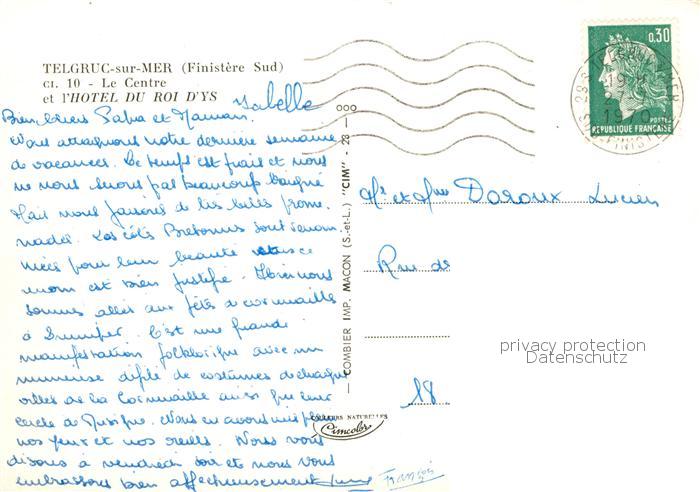 TELGRUC-sur-MER (Finistère Sud)
CI. 10 - Le Centre
et l'HOTEL DU ROI D'YS
Isabelle
Bien chers Papa et Maman.
Nous attaquons notre dernière semaine
de vacances. Le temps est frais et nous
ne nous sommes pas beaucoup baigné
Mais nous faisons de très belles prome.
nades. Les côtes Bretonnes sont renom.
mées pour leur beauté et ce
renom est bien justifié. Hier nous
sommes allés aux fêtes de cornouaille
à Quimper. C'est une grande
manifestation folklorique avec un
immense défilé de costumes de chaque
villes de la Cornouaille ainsi que leur
cercle de Musique. Nous en avons mis plein
nos yeux et nos oreilles. Nous vous
disons à vendredi soir et nous vous
embrassons bien affectueusement
François
COMBIER IMP. MACON (S.-et-L.) "CIM" - 23 - 000
COULEURS NATURELLES
Cimcolor
0,30
POSTES
REPUBLIQUE FRANÇAISE
1970
Mr et Mme Doroux Lucien
Rue de
18
privacy protection
Datenschutz